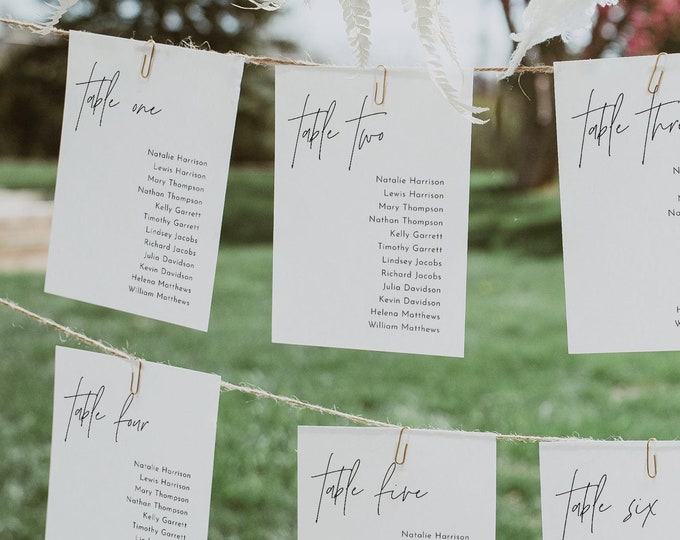 table one
Natalie Harrison
Lewis Harrison
Mary Thompson
Nathan Thompson
Kelly Garrett
Timothy Garrett
Lindsey Jacobs
Richard Jacobs
Julia Davidson
Kevin Davidson
Helena Matthews
William Matthews
table two
Natalie Harrison
Lewis Harrison
Mary Thompson
Nathan Thompson
Kelly Garrett
Timothy Garrett
Lindsey Jacobs
Richard Jacobs
Julia Davidson
Kevin Davidson
Helena Matthews
William Matthews
table three
table four
Natalie Harrison
Lewis Harrison
Mary Thompson
Nathan Thompson
Kelly Garrett
Timothy Garrett
Lindsey Jacobs
table five
Natalie Harrison
table six